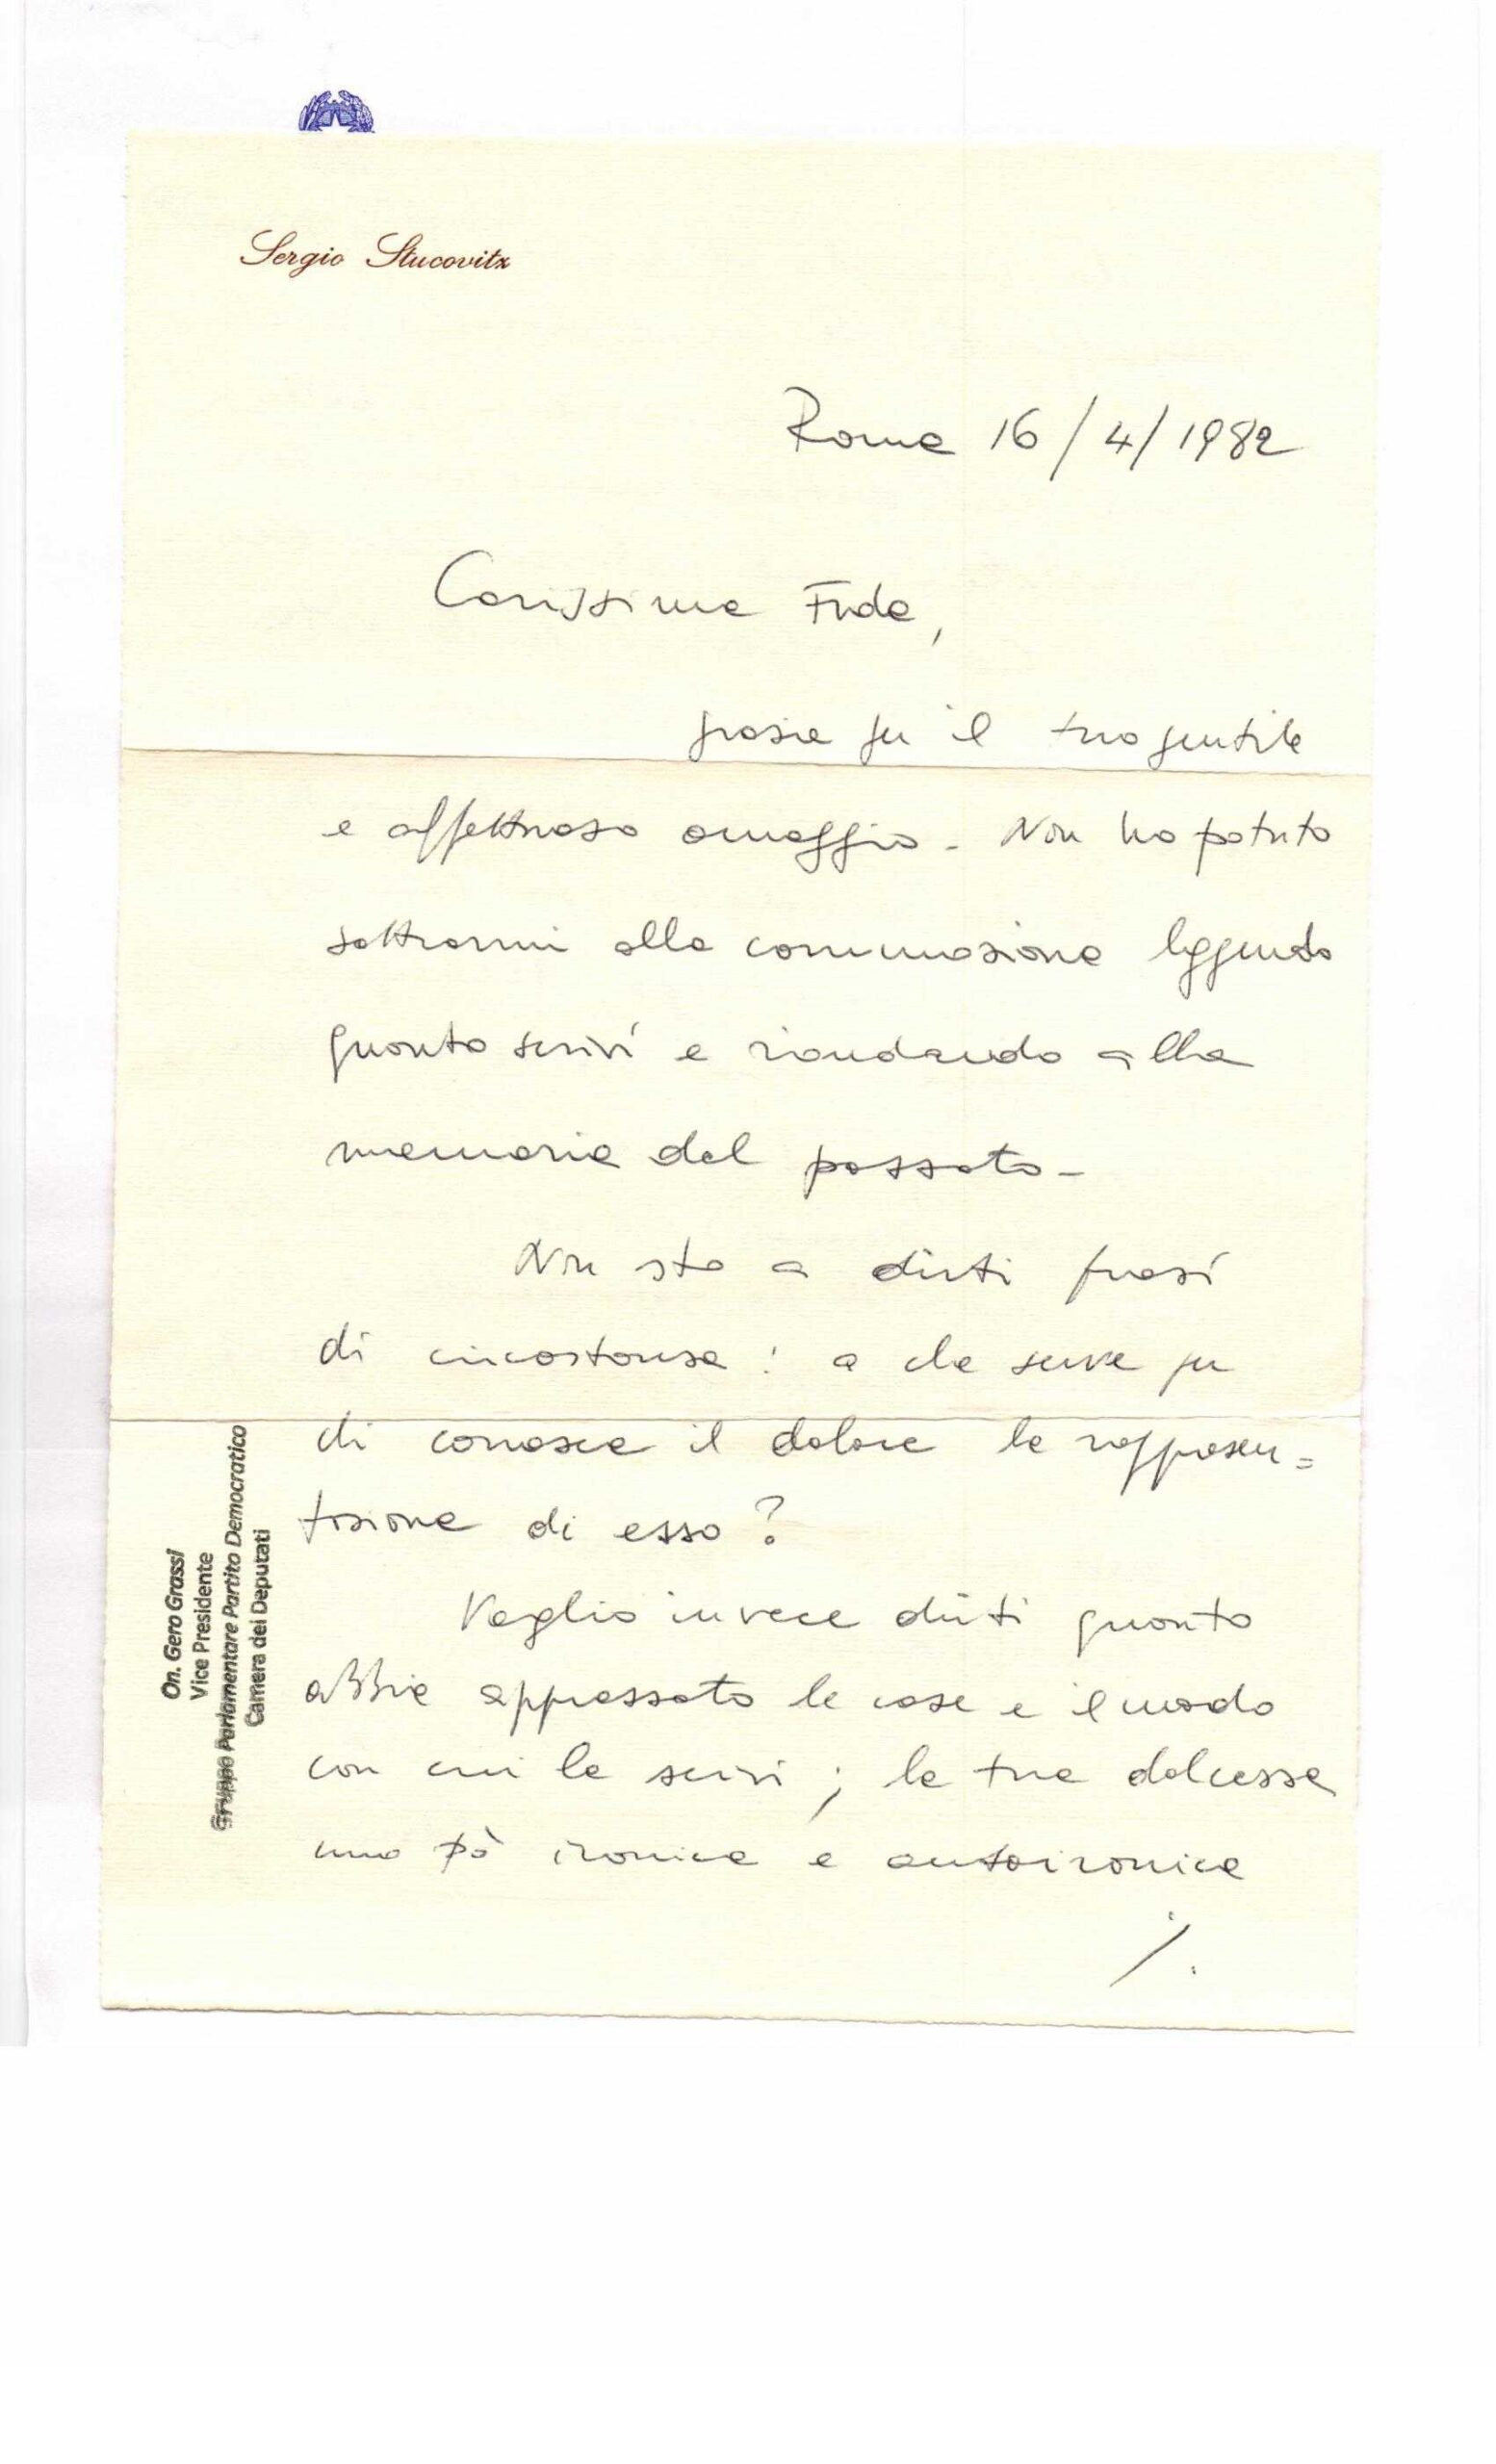 Sergio Stucovitz
Roma 16/4/1982
Carissima Fida,
grazie per il tuo gentile
e affettuoso omaggio - Non ho potuto
sottrarmi alla commozione leggendo
quanto scrivi e riandando alla
memoria del passato -
Non sto a dirti frasi
di circostanza: a che serve per
chi conosce il dolore la rappresen=
tazione di esso?
Voglio invece dirti quanto
abbia apprezzato le cose e il modo
con cui le scrivi; la tua dolcezza
uno pò ironica e autoironica
./.
On. Gero Grassi
Vice Presidente
Gruppo Parlamentare Partito Democratico
Camera dei Deputati